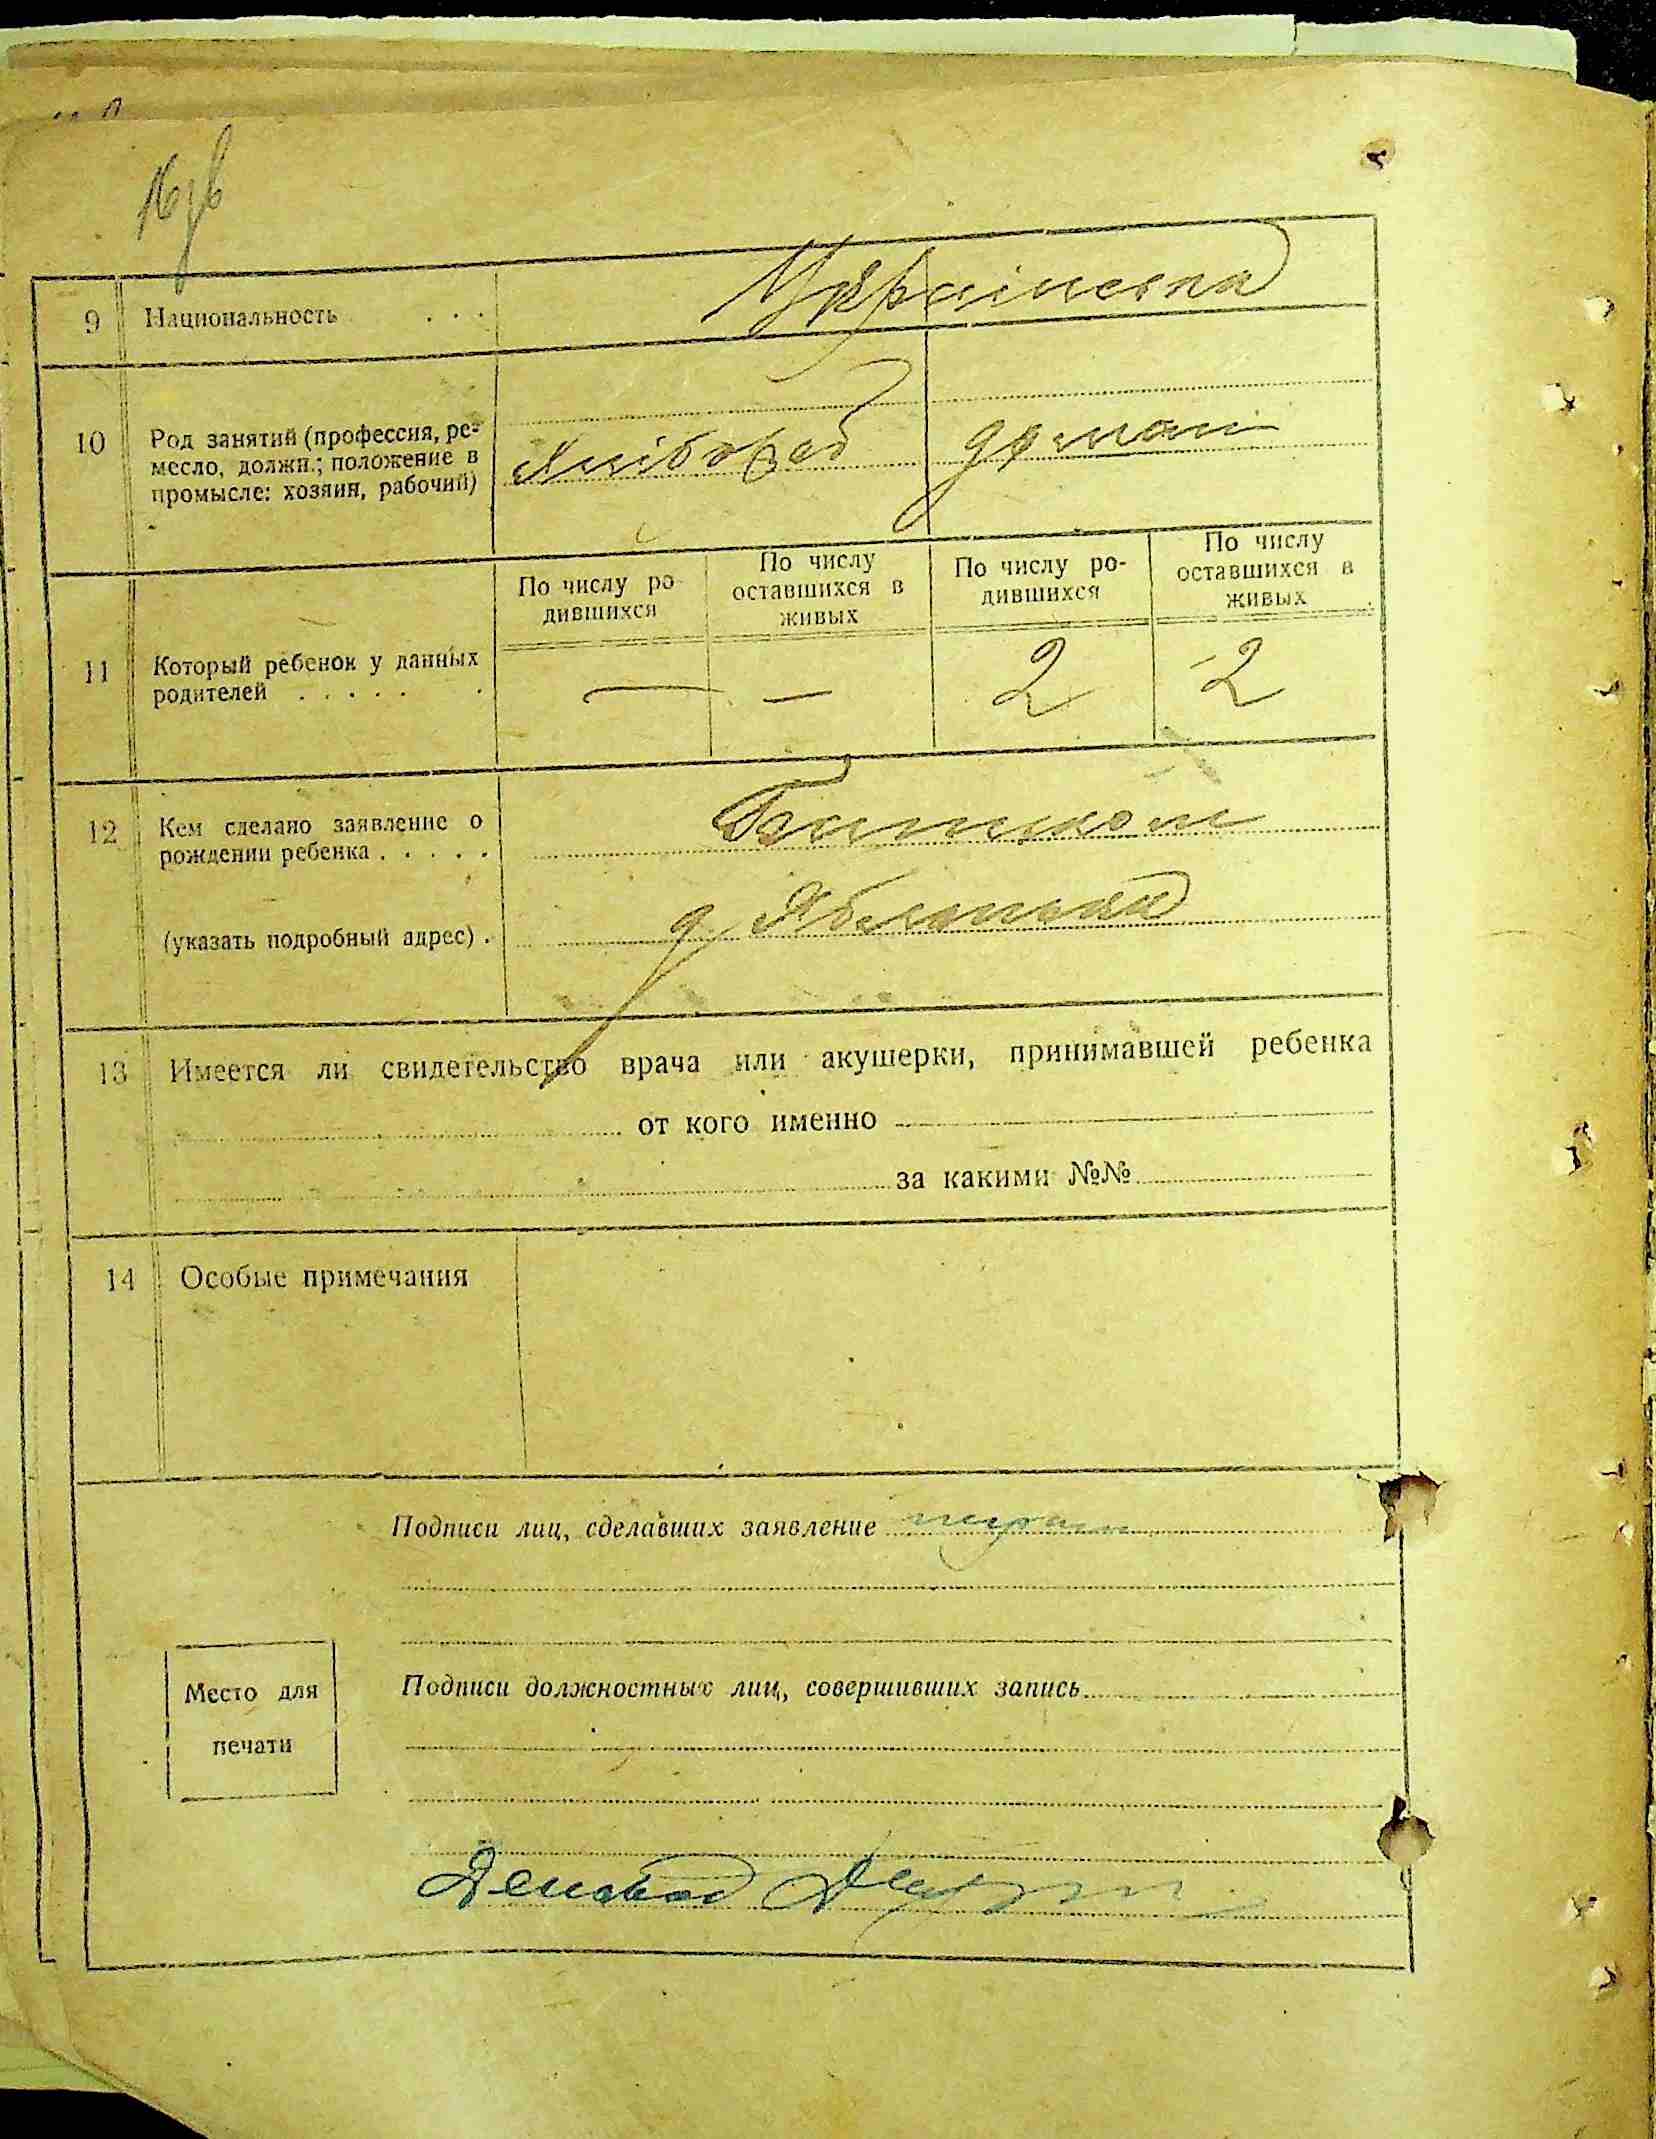 9 Национальность . . . Українська
10 Род занятий (профессия, ре-
месло, должн.; положение в
промысле: хозяин, рабочий)
Хлібороб домаш
11 Который ребенок у данных
родителей . . . . . .
По числу ро-
дившихся
По числу
оставшихся в
живых
По числу ро-
дившихся
По числу
оставшихся в
живых
— — 2 2
12 Кем сделано заявление о
рождении ребенка . . . . .
Батьком
(указать подробный адрес) .
13 Имеется ли свидетельство врача или акушерки, принимавшей ребенка
от кого именно
за какими №№
14 Особые примечания
Подписи лиц, сделавших заявление
Место для
печати
Подписи должностных лиц, совершивших запись